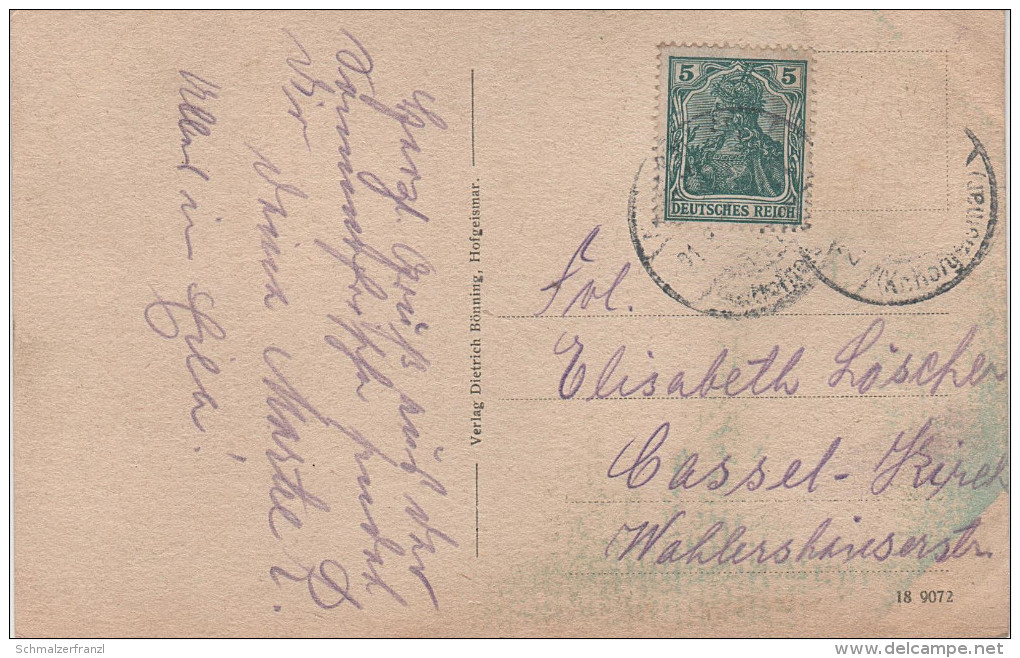 Herzl. Gruß aus der
Sommerfrische sendet
Dir
Deine Martel L.
in Eila!
Verlag Dietrich Bönning, Hofgeismar.
5 5
DEUTSCHES REICH
Frl.
Elisabeth Löscher
Cassel-Kirch
Wahlershäuserstr.
18 9072
Schmalzerfranzl
delcampe.net